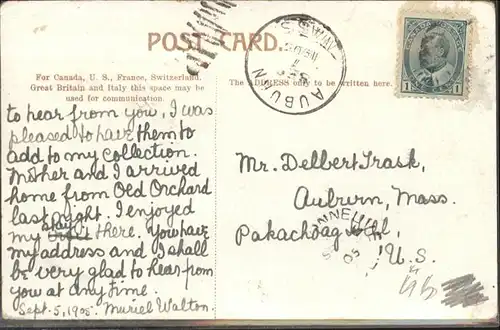 POST CARD.
For Canada, U. S., France, Switzerland,
Great Britain and Italy this space may be
used for communication.
The ADDRESS only to be written here.
AUBURN
CANADA POSTAGE
1 1
to hear from you, I was
pleased to have them to
add to my collection.
Mother and I arrived
home from Old Orchard
last night. I enjoyed
my stay there. You have
my address and I shall
be very glad to hear from
you at any time.
Sept. 5, 1905. Muriel Walton.
Mr. Delbert Trask,
Auburn, Mass.
Pakachoag Hill,
U. S.
05